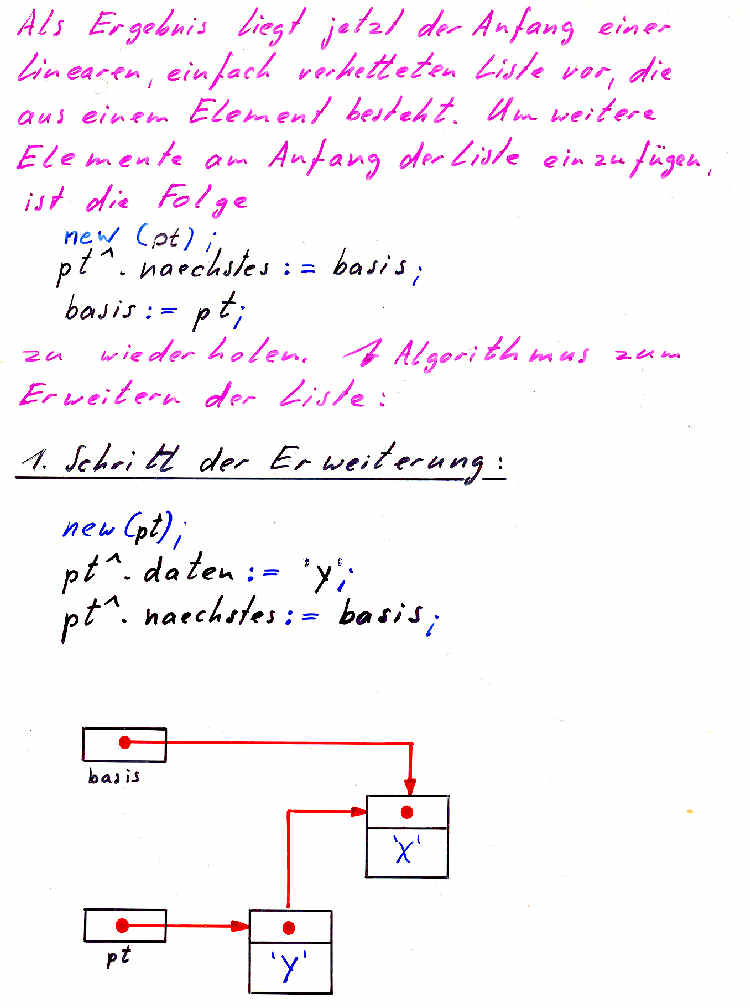 Als Ergebnis liegt jetzt der Anfang einer
linearen, einfach verketteten Liste vor, die
aus einem Element besteht. Um weitere
Elemente am Anfang der Liste einzufügen,
ist die Folge
new (pt);
pt^. naechstes := basis;
basis := pt;
zu wiederholen. Algorithmus zum
Erweitern der Liste:
1. Schritt der Erweiterung:
new(pt);
pt^. daten := 'Y';
pt^. naechstes := basis;
basis
'X'
pt
'Y'